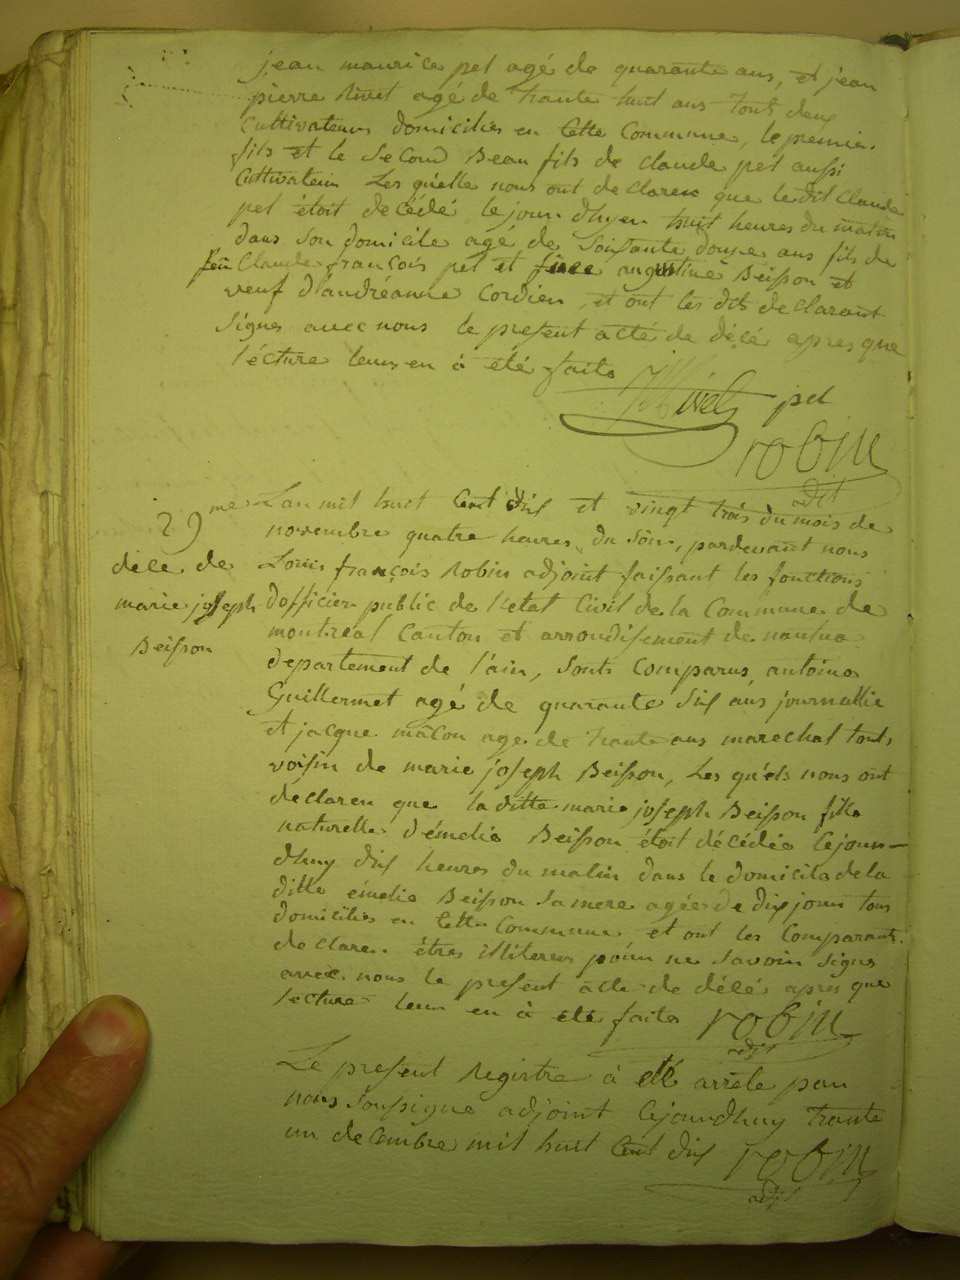 jean maurice pet agé de quarante ans, et jean
pierre Nivet agé de trante huit ans tout deux
Cultivateurs domiciliés en Cette Commune, le premier
fils et le Second Beau fils de claude pet aussi
Cultivateur Les quelle nous ont declarer que le dit Claude
pet étoit décédé le jour dhyer huit heures du matin
dans son domicile agé de Soixante douze ans fils de
feu Claude françois pet et augustine Beisson et
veuf d'andréanne Cordier, et ont les dts declarant
Signés avec nous le present acté de décé apres que
lécture leurs en à été faite
Nivet pet
robin
adjt
29me
décé de
marie joseph
Beisson
Lan mil huit Cent dix et vingt trois du mois de
novembre quatre heures du Soir, pardevant nous
Louis françois Robin adjoint faissant les fonctions
dofficier public de létat Civil de la Commune de
montréal Canton et arrondissement de nantua
departement de l'ain, Sonts Comparus antoine
Guillermet agé de quarante Six ans journallie
et jacque mâcon age de trante ans marechal touts
voisin de marie joseph Beisson, Les quéls nous ont
declarer que la ditte marie joseph Beisson fille
naturelle démelie Beisson étoit décédée lejour
dhuy dix heures du matin dans le domicile de la
ditte émelie Beisson Sa mere agée de dix jours tous
domiciliés en Cette Commune et ont les Comparants
declarer étres illiterer pour ne Savoir Signe
avec nous le present acte de décé apres que
lecture leur en à été faite robin
adjt
Le present Registre à été arrète par
nous Soussigne adjoint Cejourdhuy trante
un decembre mil huit Cent dix robin
adjt